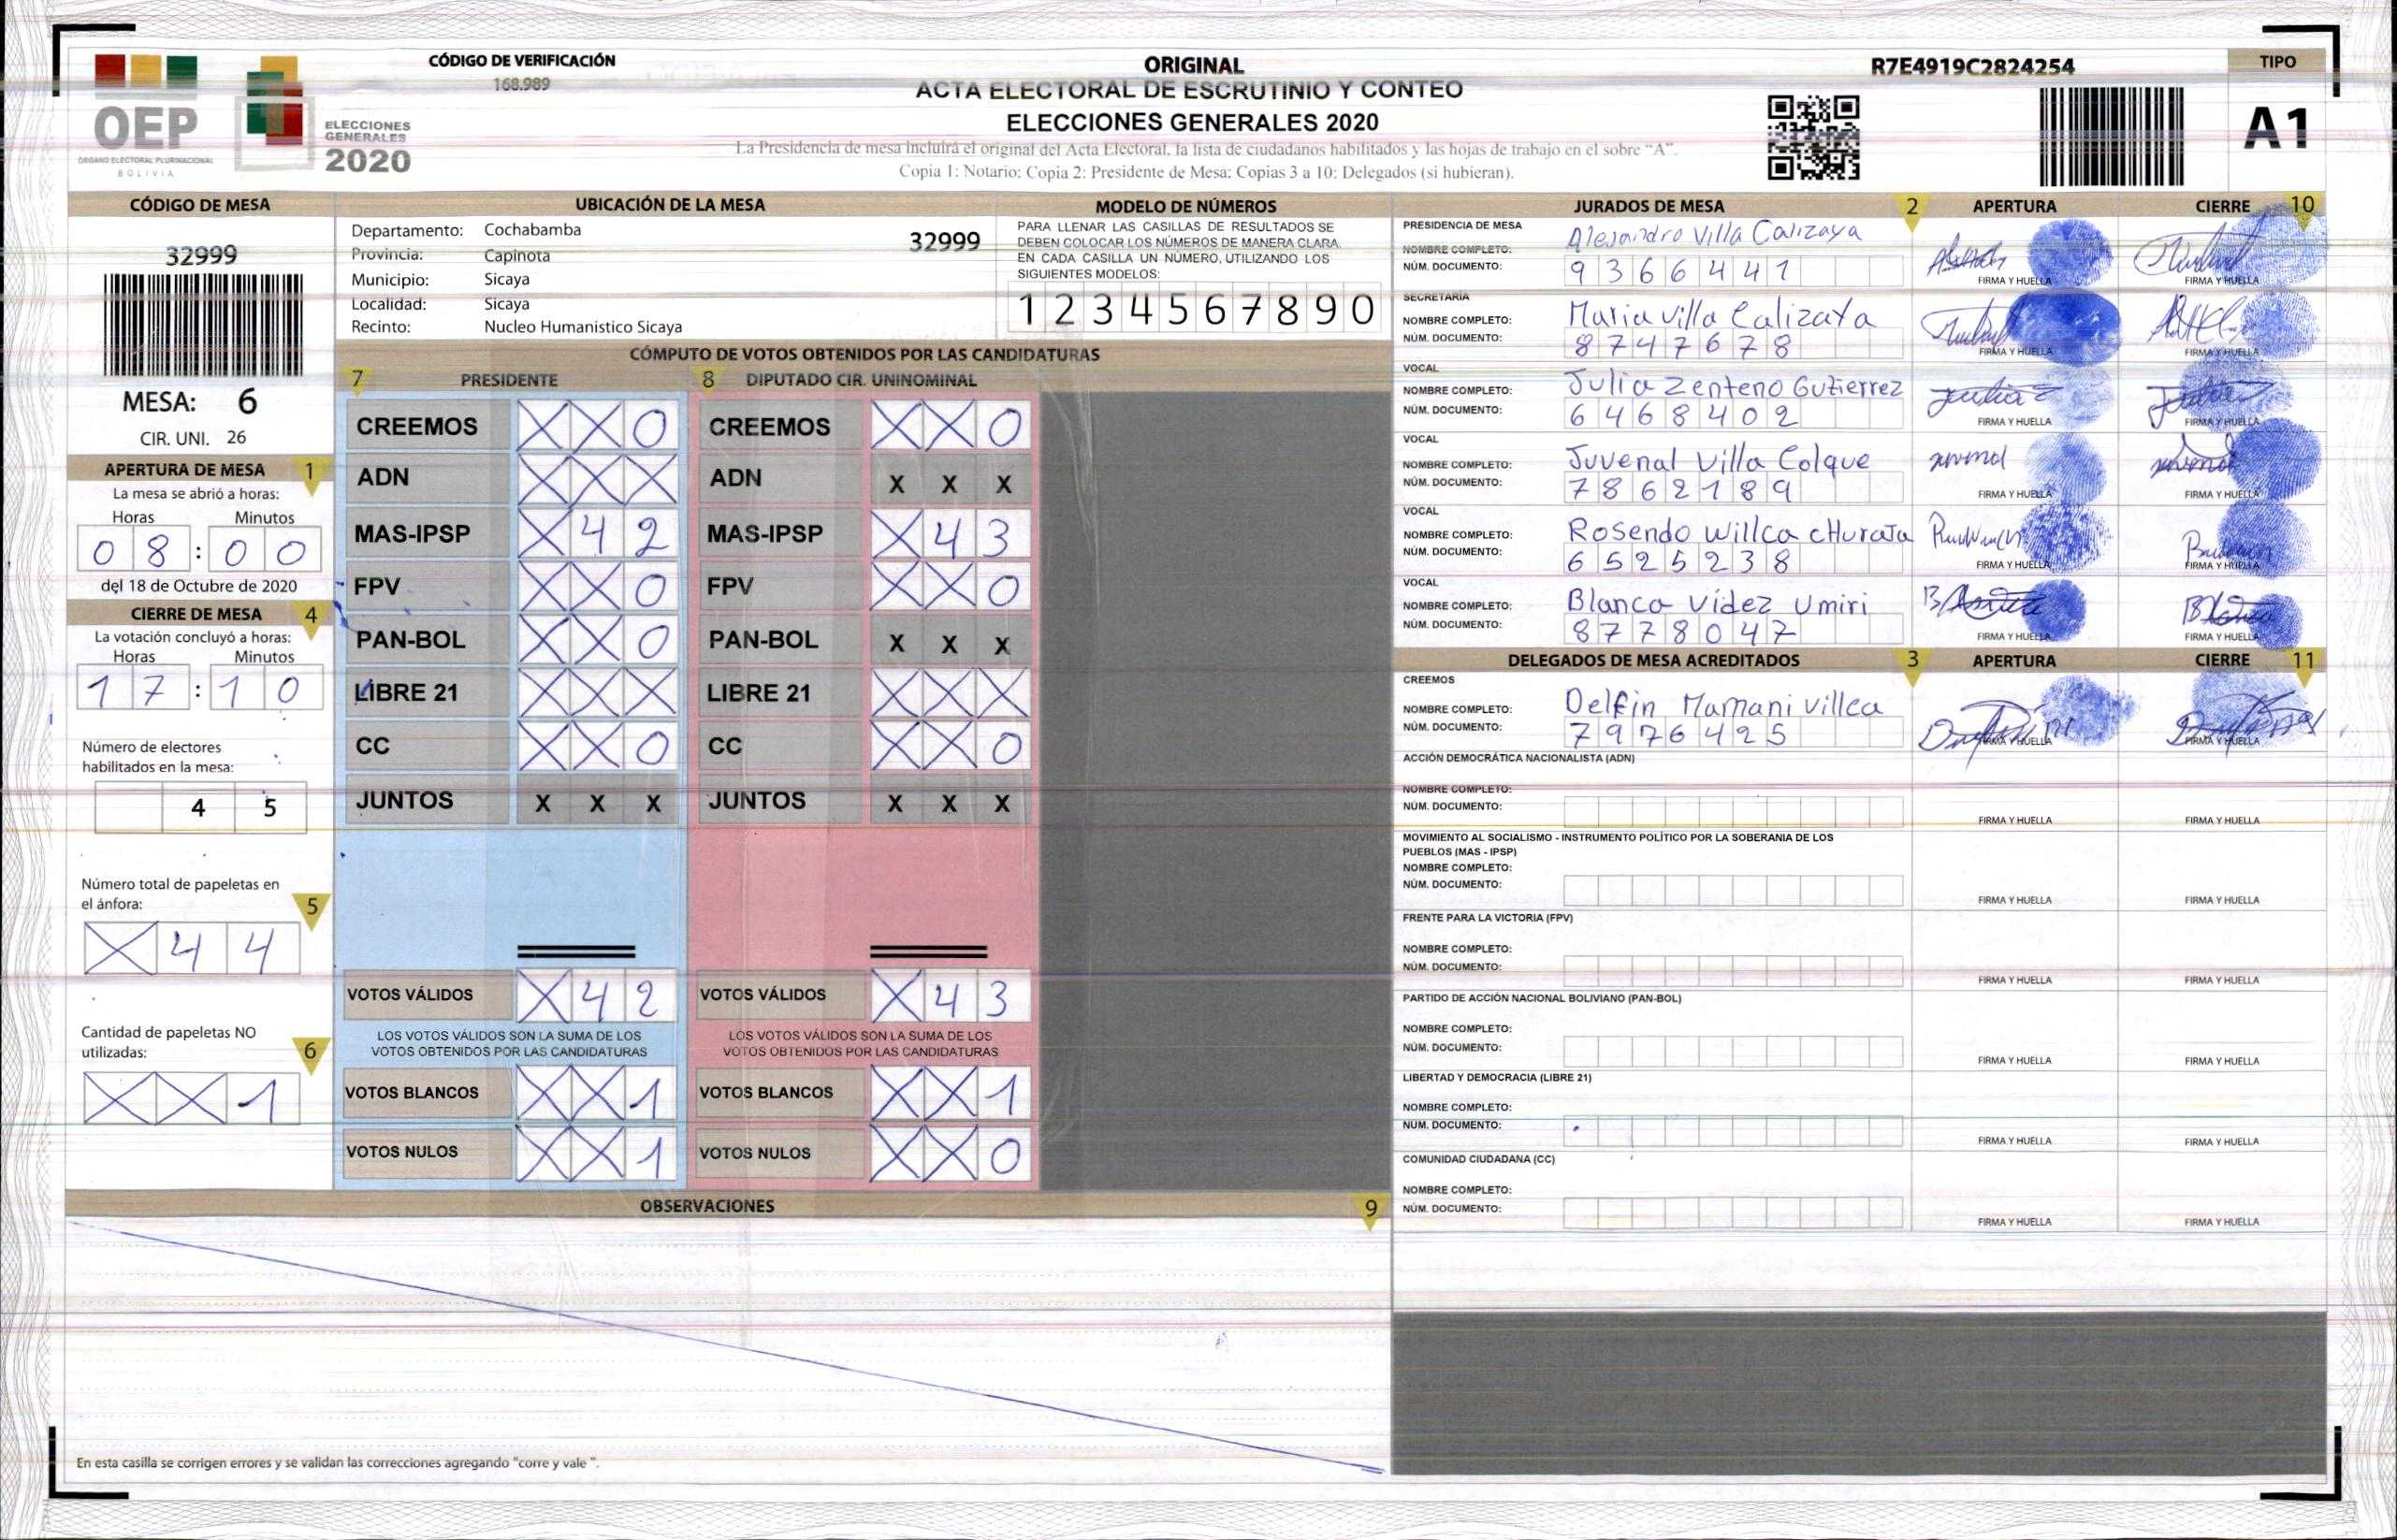 CÓDIGO DE VERIFICACIÓN
168.989
OEP
ÓRGANO ELECTORAL PLURINACIONAL
BOLIVIA
ELECCIONES
GENERALES
2020
ORIGINAL
ACTA ELECTORAL DE ESCRUTINIO Y CONTEO
ELECCIONES GENERALES 2020
La Presidencia de mesa incluirá el original del Acta Electoral, la lista de ciudadanos habilitados y las hojas de trabajo en el sobre "A".
Copia 1: Notario; Copia 2: Presidente de Mesa; Copias 3 a 10: Delegados (si hubieran).
R7E4919C2824254
TIPO
A1
CÓDIGO DE MESA
32999
MESA: 6
CIR. UNI. 26
APERTURA DE MESA 1
La mesa se abrió a horas:
Horas Minutos
08:00
del 18 de Octubre de 2020
CIERRE DE MESA 4
La votación concluyó a horas:
Horas Minutos
17:10
Número de electores
habilitados en la mesa:
4 5
Número total de papeletas en
el ánfora: 5
X 4 4
Cantidad de papeletas NO
utilizadas: 6
X X 1
UBICACIÓN DE LA MESA
Departamento: Cochabamba 32999
Provincia: Capinota
Municipio: Sicaya
Localidad: Sicaya
Recinto: Nucleo Humanistico Sicaya
MODELO DE NÚMEROS
PARA LLENAR LAS CASILLAS DE RESULTADOS SE
DEBEN COLOCAR LOS NÚMEROS DE MANERA CLARA.
EN CADA CASILLA UN NÚMERO, UTILIZANDO LOS
SIGUIENTES MODELOS:
1 2 3 4 5 6 7 8 9 0
CÓMPUTO DE VOTOS OBTENIDOS POR LAS CANDIDATURAS
7 PRESIDENTE 8 DIPUTADO CIR. UNINOMINAL
CREEMOS X X 0 CREEMOS X X 0
ADN X X X ADN X X X
MAS-IPSP X 4 2 MAS-IPSP X 4 3
FPV X X 0 FPV X X 0
PAN-BOL X X 0 PAN-BOL X X X
LIBRE 21 X X X LIBRE 21 X X X
CC X X 0 CC X X 0
JUNTOS X X X JUNTOS X X X
VOTOS VÁLIDOS X 4 2 VOTOS VÁLIDOS X 4 3
LOS VOTOS VÁLIDOS SON LA SUMA DE LOS LOS VOTOS VÁLIDOS SON LA SUMA DE LOS
VOTOS OBTENIDOS POR LAS CANDIDATURAS VOTOS OBTENIDOS POR LAS CANDIDATURAS
VOTOS BLANCOS X X 1 VOTOS BLANCOS X X 1
VOTOS NULOS X X 1 VOTOS NULOS X X 0
OBSERVACIONES 9
En esta casilla se corrigen errores y se validan las correcciones agregando "corre y vale ".
JURADOS DE MESA 2 APERTURA CIERRE 10
PRESIDENCIA DE MESA
NOMBRE COMPLETO: Alejandro Villa Calizaya
NÚM. DOCUMENTO: 9366441
FIRMA Y HUELLA FIRMA Y HUELLA
SECRETARÍA
NOMBRE COMPLETO: Maria villa Calizaya
NÚM. DOCUMENTO: 8747678
FIRMA Y HUELLA FIRMA Y HUELLA
VOCAL
NOMBRE COMPLETO: Julia Zenteno Gutierrez
NÚM. DOCUMENTO: 6468402
FIRMA Y HUELLA FIRMA Y HUELLA
VOCAL
NOMBRE COMPLETO: Juvenal Villa Colque
NÚM. DOCUMENTO: 7862189
FIRMA Y HUELLA FIRMA Y HUELLA
VOCAL
NOMBRE COMPLETO: Rosendo Willca cHurata
NÚM. DOCUMENTO: 6525238
FIRMA Y HUELLA FIRMA Y HUELLA
VOCAL
NOMBRE COMPLETO: Blanca Videz Umiri
NÚM. DOCUMENTO: 8778047
FIRMA Y HUELLA FIRMA Y HUELLA
DELEGADOS DE MESA ACREDITADOS 3 APERTURA CIERRE 11
CREEMOS
NOMBRE COMPLETO: Delfin Mamani villca
NÚM. DOCUMENTO: 7976425
FIRMA Y HUELLA FIRMA Y HUELLA
ACCIÓN DEMOCRÁTICA NACIONALISTA (ADN)
NOMBRE COMPLETO:
NÚM. DOCUMENTO:
FIRMA Y HUELLA FIRMA Y HUELLA
MOVIMIENTO AL SOCIALISMO - INSTRUMENTO POLÍTICO POR LA SOBERANIA DE LOS
PUEBLOS (MAS - IPSP)
NOMBRE COMPLETO:
NÚM. DOCUMENTO:
FIRMA Y HUELLA FIRMA Y HUELLA
FRENTE PARA LA VICTORIA (FPV)
NOMBRE COMPLETO:
NÚM. DOCUMENTO:
FIRMA Y HUELLA FIRMA Y HUELLA
PARTIDO DE ACCIÓN NACIONAL BOLIVIANO (PAN-BOL)
NOMBRE COMPLETO:
NÚM. DOCUMENTO:
FIRMA Y HUELLA FIRMA Y HUELLA
LIBERTAD Y DEMOCRACIA (LIBRE 21)
NOMBRE COMPLETO:
NÚM. DOCUMENTO:
FIRMA Y HUELLA FIRMA Y HUELLA
COMUNIDAD CIUDADANA (CC)
NOMBRE COMPLETO:
NÚM. DOCUMENTO:
FIRMA Y HUELLA FIRMA Y HUELLA